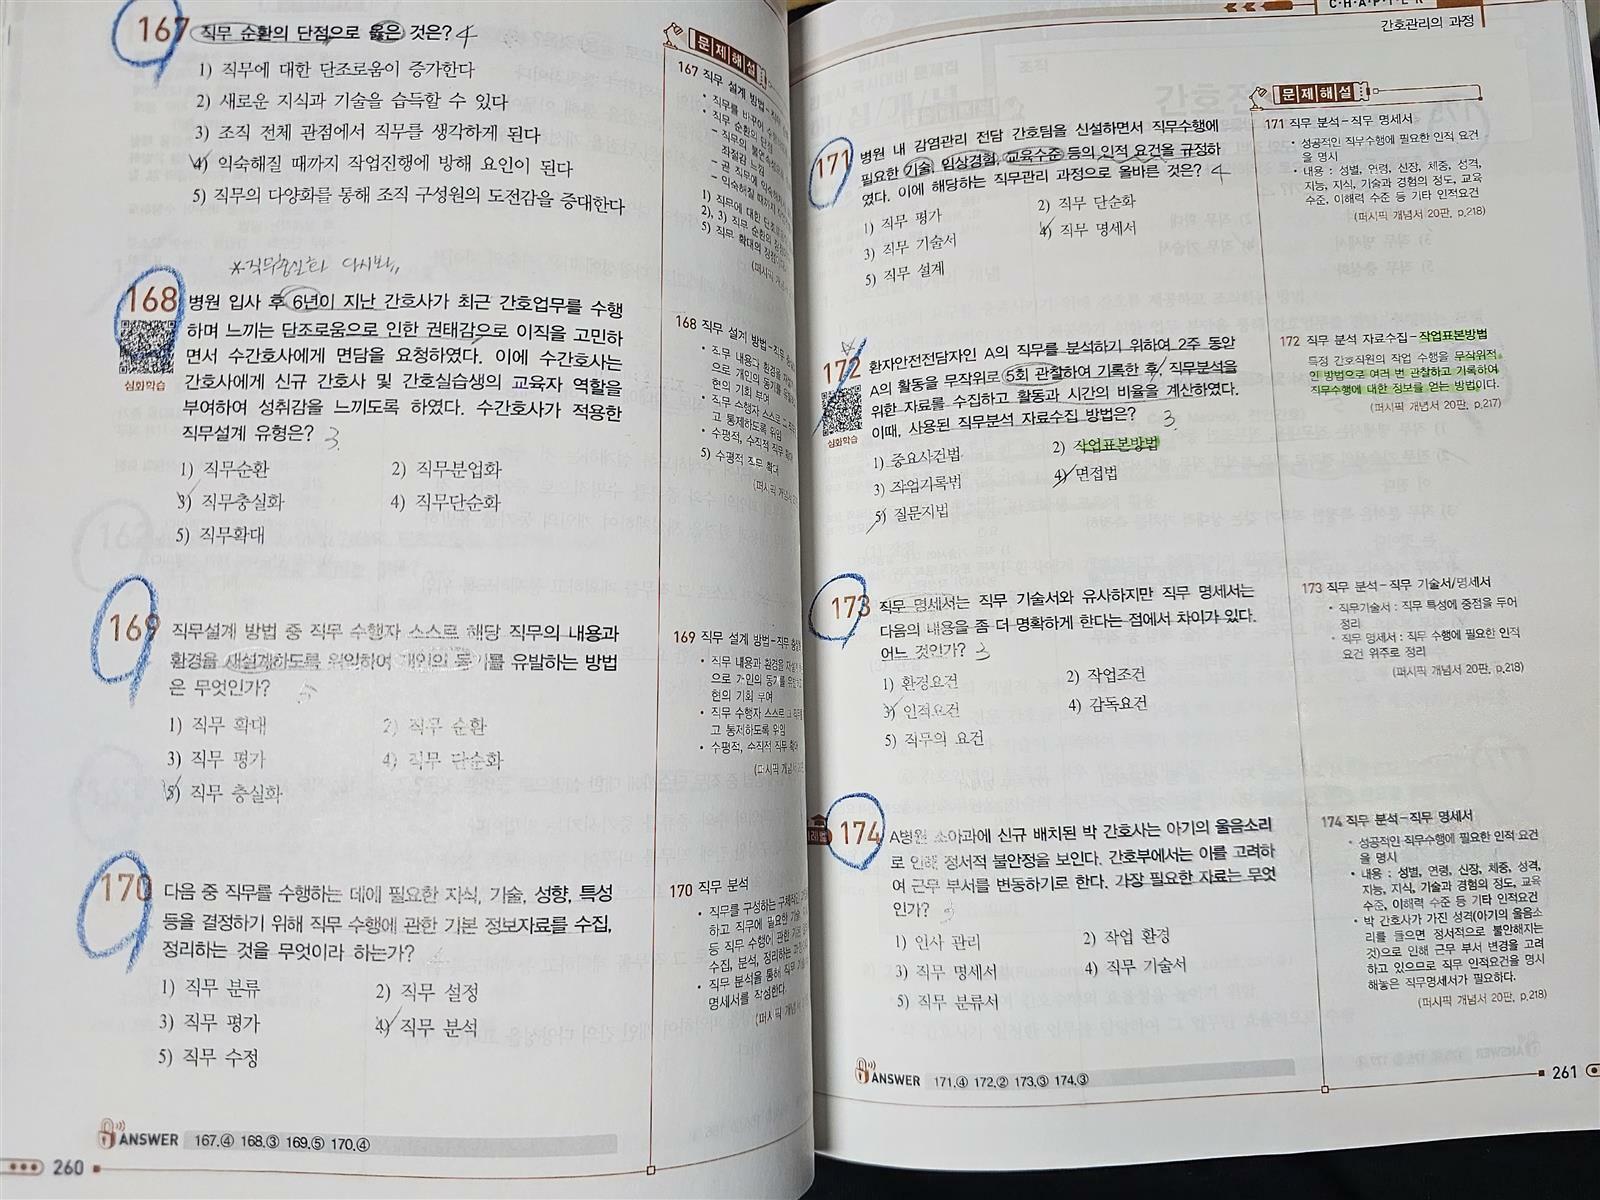 167 직무 순환의 단점으로 옳은 것은? 4
1) 직무에 대한 단조로움이 증가한다
2) 새로운 지식과 기술을 습득할 수 있다
3) 조직 전체 관점에서 직무를 생각하게 된다
4) 익숙해질 때까지 작업진행에 방해 요인이 된다
5) 직무의 다양화를 통해 조직 구성원의 도전감을 증대한다
168 병원 입사 후 6년이 지난 간호사가 최근 간호업무를 수행
하며 느끼는 단조로움으로 인한 권태감으로 이직을 고민하
면서 수간호사에게 면담을 요청하였다. 이에 수간호사는
간호사에게 신규 간호사 및 간호실습생의 교육자 역할을
부여하여 성취감을 느끼도록 하였다. 수간호사가 적용한
직무설계 유형은? 3
심화학습
1) 직무순환 2) 직무분업화
3) 직무충실화 4) 직무단순화
5) 직무확대
169 직무설계 방법 중 직무 수행자 스스로 해당 직무의 내용과
환경을 재설계하도록 위임하여 개인의 동기를 유발하는 방법
은 무엇인가? 5
1) 직무 확대 2) 직무 순환
3) 직무 평가 4) 직무 단순화
5) 직무 충실화
170 다음 중 직무를 수행하는 데에 필요한 지식, 기술, 성향, 특성
등을 결정하기 위해 직무 수행에 관한 기본 정보자료를 수집,
정리하는 것을 무엇이라 하는가?
1) 직무 분류 2) 직무 설정
3) 직무 평가 4) 직무 분석
5) 직무 수정
ANSWER 167.④ 168.③ 169.⑤ 170.④
260
문제해설
167 직무 설계 방법-직무
• 직무를 바꾸어 수행
• 직무 순환의 단점
- 직무의 불연속성으로
좌절감 느낌
- 곧 직무에 익숙해지
- 익숙해질 때까지 작
1) 직무에 대한 단조로
2), 3) 직무 순환의 장점
5) 직무 확대의 장점이다
(퍼시픽 개념서
168 직무 설계 방법-직무 충
• 직무 내용과 환경을 재설
으로 개인의 동기를 유발
현의 기회 부여
• 직무 수행자 스스로 그
고 통제하도록 위임
• 수평적, 수직적 직무 확대
5) 수평적 직무 확대
(퍼시픽 개념서
169 직무 설계 방법-직무 충실
• 직무 내용과 환경을 재설
으로 개인의 동기를 유발하
현의 기회 부여
• 직무 수행자 스스로 그 직무
고 통제하도록 위임
• 수평적, 수직적 직무 확대
(퍼시픽 개념서
170 직무 분석
• 직무를 구성하는 구체적인
하고 직무에 필요한 기술,
등 직무 수행에 관한 기본
수집, 분석, 정리하는 과정
• 직무 분석을 통해 직무 기술
명세서를 작성한다.
(퍼시픽 개념서
CHAPTER
간호관리의 과정
171 병원 내 감염관리 전담 간호팀을 신설하면서 직무수행에
필요한 기술, 임상경험, 교육수준 등의 인적 요건을 규정하
였다. 이에 해당하는 직무관리 과정으로 올바른 것은? 4
1) 직무 평가 2) 직무 단순화
3) 직무 기술서 4) 직무 명세서
5) 직무 설계
172 환자안전전담자인 A의 직무를 분석하기 위하여 2주 동안
A의 활동을 무작위로 5회 관찰하여 기록한 후, 직무분석을
위한 자료를 수집하고 활동과 시간의 비율을 계산하였다.
이때, 사용된 직무분석 자료수집 방법은? 3
심화학습
1) 중요사건법 2) 작업표본방법
3) 작업기록법 4) 면접법
5) 질문지법
173 직무 명세서는 직무 기술서와 유사하지만 직무 명세서는
다음의 내용을 좀 더 명확하게 한다는 점에서 차이가 있다.
어느 것인가? 3
1) 환경요건 2) 작업조건
3) 인적요건 4) 감독요건
5) 직무의 요건
174 A병원 소아과에 신규 배치된 박 간호사는 아기의 울음소리
로 인해 정서적 불안정을 보인다. 간호부에서는 이를 고려하
여 근무 부서를 변동하기로 한다. 가장 필요한 자료는 무엇
인가? 3
1) 인사 관리 2) 작업 환경
3) 직무 명세서 4) 직무 기술서
5) 직무 분류서
ANSWER 171.④ 172.② 173.③ 174.③
261
문제해설
171 직무 분석-직무 명세서
• 성공적인 직무수행에 필요한 인적 요건
을 명시
• 내용 : 성별, 연령, 신장, 체중, 성격,
지능, 지식, 기술과 경험의 정도, 교육
수준, 이해력 수준 등 기타 인적요건
(퍼시픽 개념서 20판, p.218)
172 직무 분석 자료수집-작업표본방법
특정 간호직원의 작업 수행을 무작위적
인 방법으로 여러 번 관찰하고 기록하여
직무수행에 대한 정보를 얻는 방법이다.
(퍼시픽 개념서 20판, p.217)
173 직무 분석-직무 기술서/명세서
• 직무기술서 : 직무 특성에 중점을 두어
정리
• 직무 명세서 : 직무 수행에 필요한 인적
요건 위주로 정리
(퍼시픽 개념서 20판, p.218)
174 직무 분석-직무 명세서
• 성공적인 직무수행에 필요한 인적 요건
을 명시
• 내용 : 성별, 연령, 신장, 체중, 성격,
지능, 지식, 기술과 경험의 정도, 교육
수준, 이해력 수준 등 기타 인적요건
• 박 간호사가 가진 성격(아기의 울음소
리를 들으면 정서적으로 불안해지는
것)으로 인해 근무 부서 변경을 고려
하고 있으므로 직무 인적요건을 명시
해놓은 직무명세서가 필요하다.
(퍼시픽 개념서 20판, p.218)